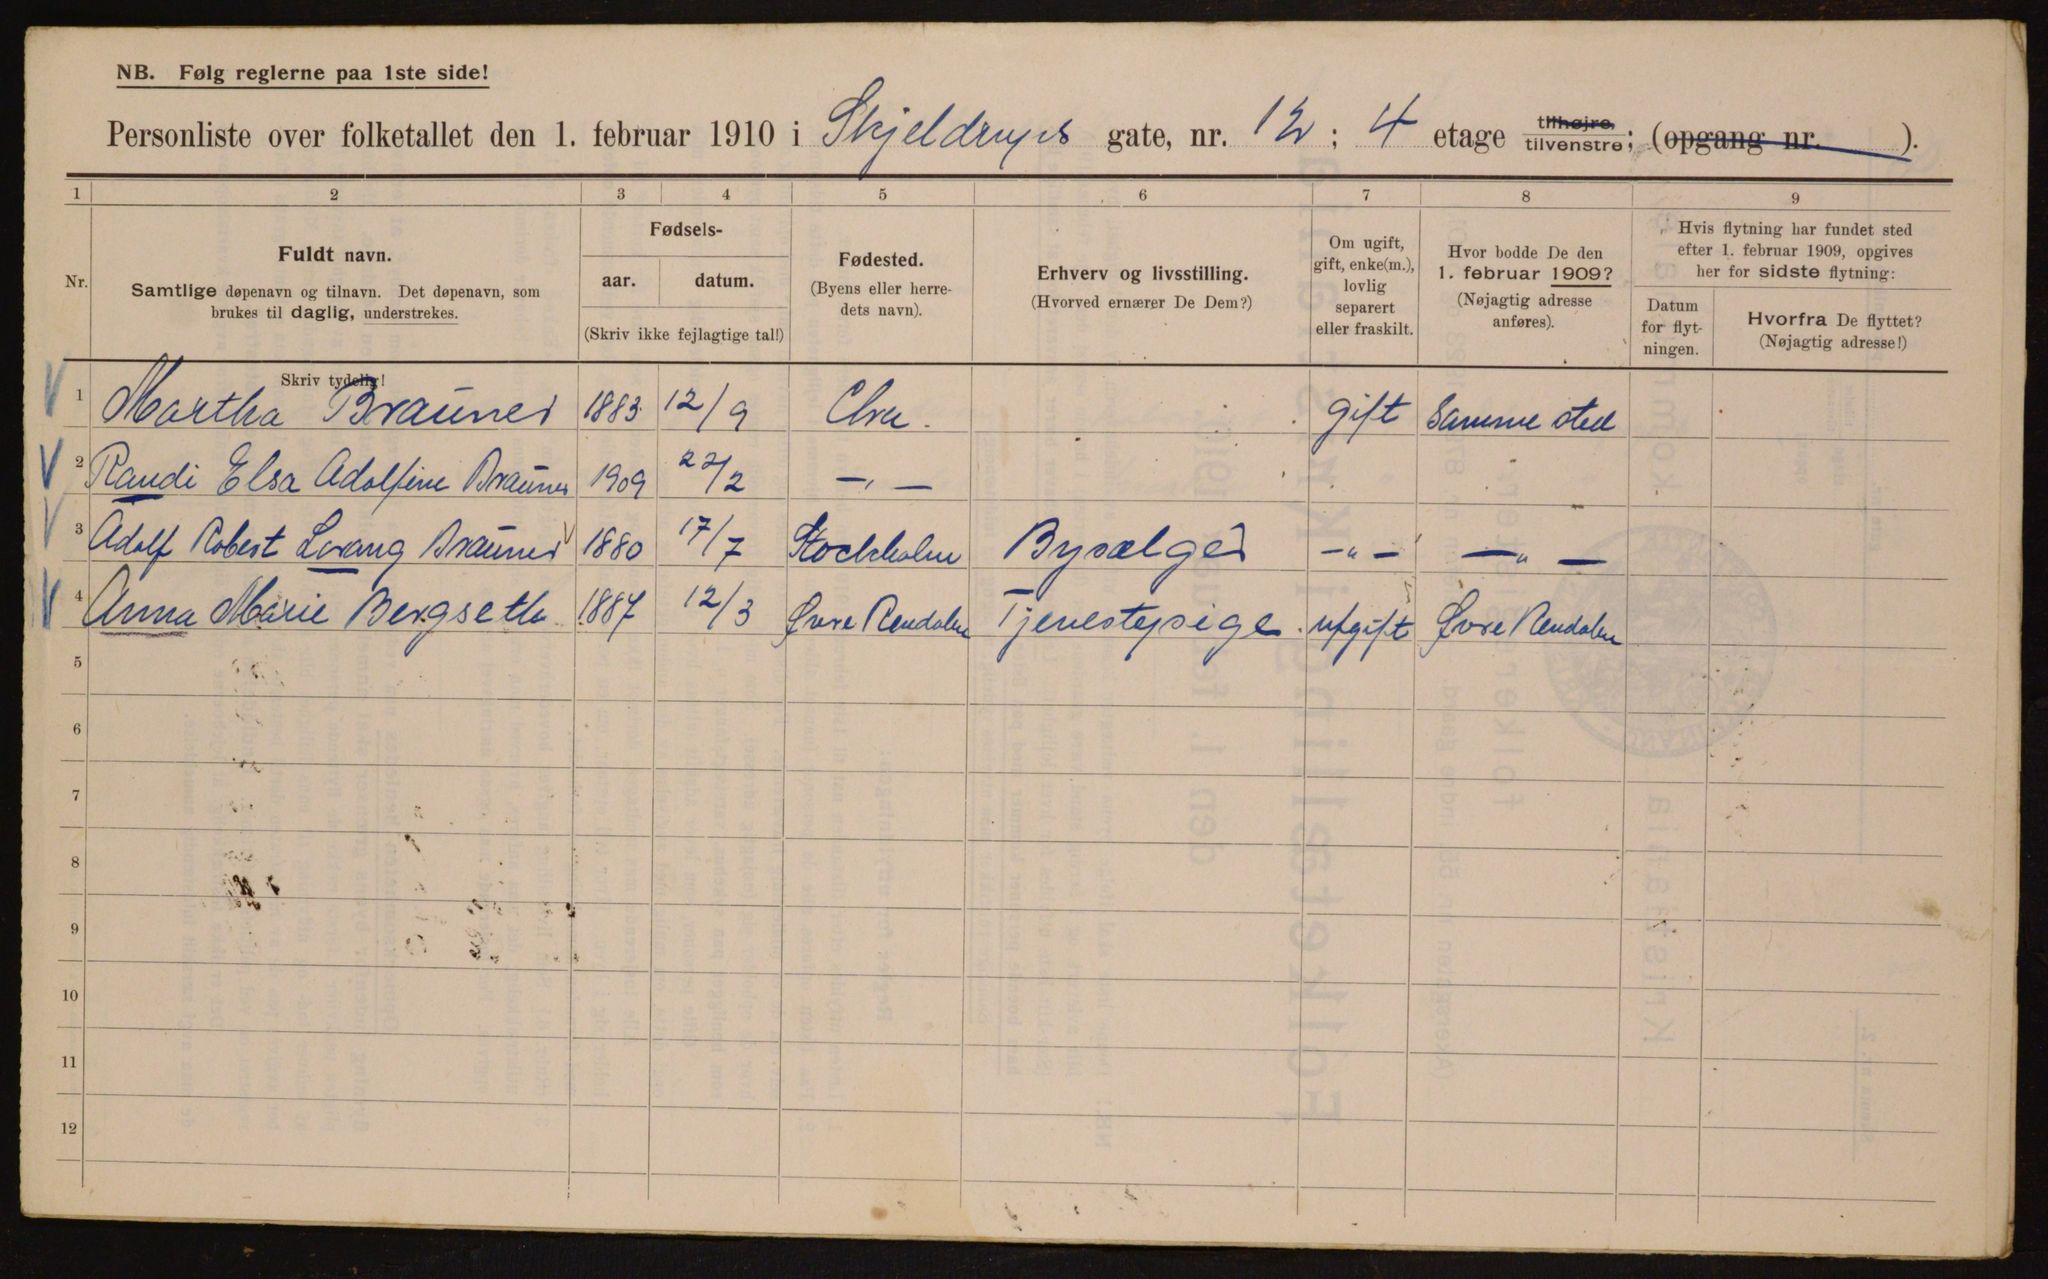 NB. Følg reglerne paa 1ste side!
Personliste over folketallet den 1. februar 1910 i Skjeldrups gate, nr. 12 ; 4 etage tilhøjre, tilvenstre; (opgang nr. ).
1 2 3 4 5 6 7 8 9
Nr.
Fuldt navn.
Samtlige døpenavn og tilnavn. Det døpenavn, som
brukes til daglig, understrekes.
Skriv tydelig!
Fødsels-
aar. datum.
(Skriv ikke fejlagtige tal!)
Fødested.
(Byens eller herre-
dets navn).
Erhverv og livsstilling.
(Hvorved ernærer De Dem?)
Om ugift,
gift, enke(m.),
lovlig
separert
eller fraskilt.
Hvor bodde De den
1. februar 1909?
(Nøjagtig adresse
anføres).
Hvis flytning har fundet sted
efter 1. februar 1909, opgives
her for sidste flytning:
Datum
for flyt-
ningen.
Hvorfra De flyttet?
(Nøjagtig adresse!)
1 Martha Brauner 1883 12/9 Chra. gift Samme sted
2 Randi Elsa Adolfine Brauner 1909 22/2 —„—
3 Adolf Robert Lorang Brauner 1880 17/7 Stockholm Bysælger —„— —„—
4 Anna Marie Bergseth 1887 12/3 Øvre Rendalen Tjenestepige ugift Øvre Rendalen
5
6
7
8
9
10
11
12